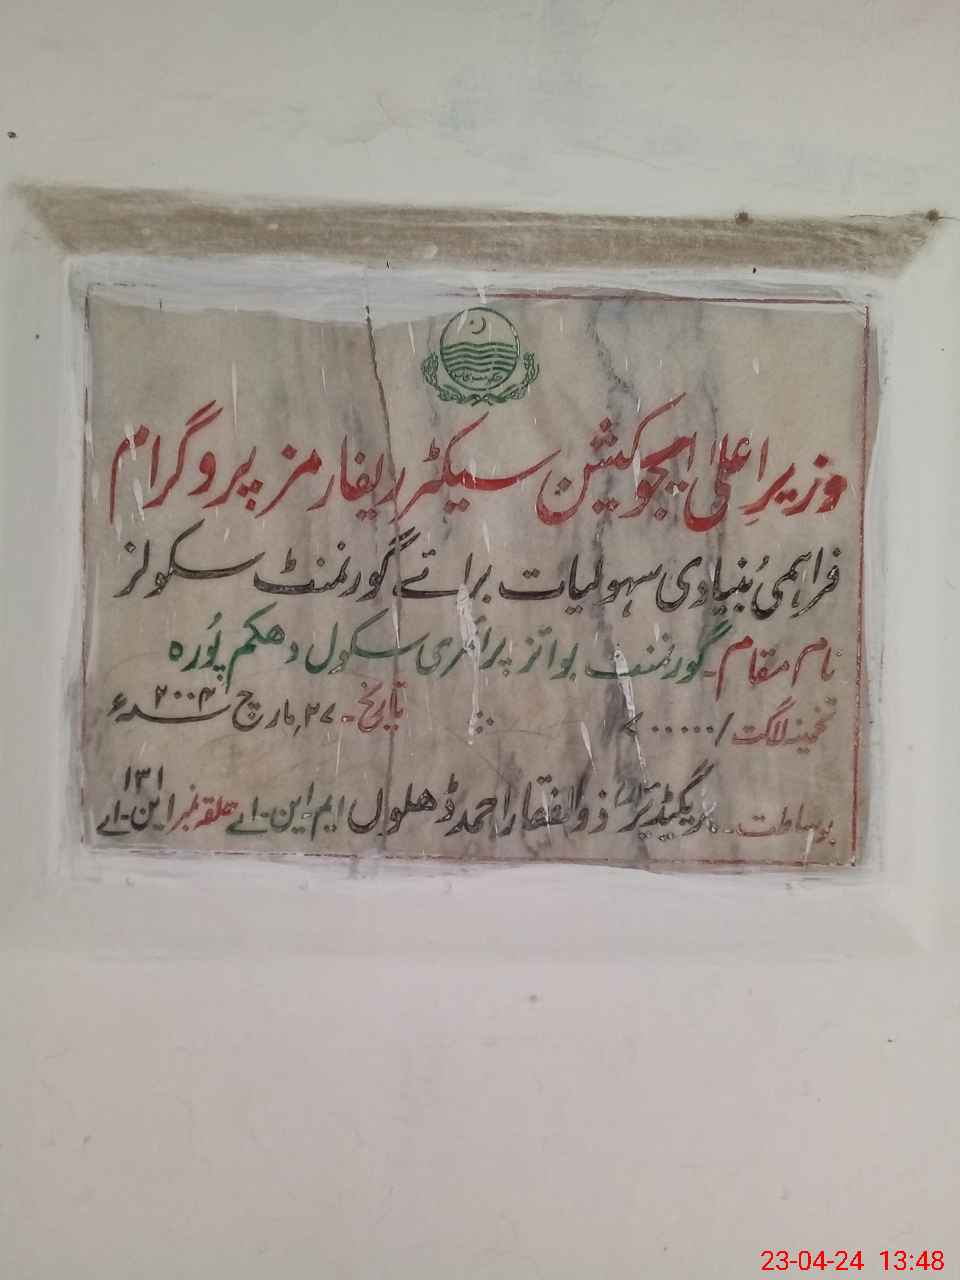 وزیرِ اعلیٰ ایجوکیشن سیکٹر ریفارمز پروگرام
فراہمیُ بُنیادی سہولیات برائے گورنمنٹ سکولز
نام مقام۔ گورنمنٹ بوائز پرائمری سکول دھکم پُورہ
تخمینہ لاگت /۷۰۰۰۰۰ تاریخ۔ ۲۷ مارچ ۲۰۰۴ء
بوساطت۔ بریگیڈیئر ذوالفقار احمد ڈھلوں ایم۔این۔اے حلقہ نمبر این۔اے ۱۳۱
23-04-24 13:48